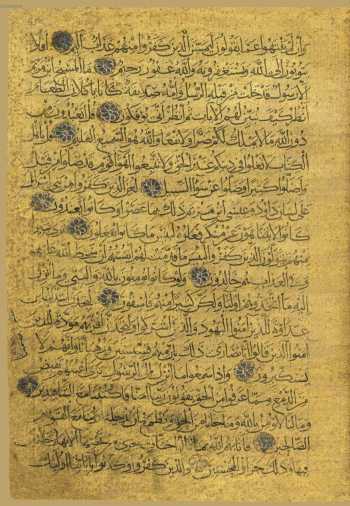 وإن لم ينتهوا عما يقولون ليمسن الذين كفروا منهم عذاب أليم أفلا
يتوبون إلى الله ويستغفرونه والله غفور رحيم ما المسيح ابن مريم
إلا رسول قد خلت من قبله الرسل وأمه صديقة كانا يأكلان الطعام
انظر كيف نبين لهم الآيات ثم انظر أنى يؤفكون قل أتعبدون من
دون الله ما لا يملك لكم ضرا ولا نفعا والله هو السميع العليم قل يا أهل
الكتاب لا تغلوا في دينكم غير الحق ولا تتبعوا أهواء قوم قد ضلوا من قبل
وأضلوا كثيرا وضلوا عن سواء السبيل لعن الذين كفروا من بني إسرائيل
على لسان داود وعيسى ابن مريم ذلك بما عصوا وكانوا يعتدون
كانوا لا يتناهون عن منكر فعلوه لبئس ما كانوا يفعلون ترى كثيرا
منهم يتولون الذين كفروا لبئس ما قدمت لهم أنفسهم أن سخط الله عليهم
وفي العذاب هم خالدون ولو كانوا يؤمنون بالله والنبي وما أنزل
إليه ما اتخذوهم أولياء ولكن كثيرا منهم فاسقون لتجدن أشد الناس
عداوة للذين آمنوا اليهود والذين أشركوا ولتجدن أقربهم مودة للذين
آمنوا الذين قالوا إنا نصارى ذلك بأن منهم قسيسين ورهبانا وأنهم لا
يستكبرون وإذا سمعوا ما أنزل إلى الرسول ترى أعينهم تفيض
من الدمع مما عرفوا من الحق يقولون ربنا آمنا فاكتبنا مع الشاهدين
وما لنا لا نؤمن بالله وما جاءنا من الحق ونطمع أن يدخلنا ربنا مع القوم
الصالحين فأثابهم الله بما قالوا جنات تجري من تحتها الأنهار خالدين
فيها وذلك جزاء المحسنين والذين كفروا وكذبوا بآياتنا أولئك